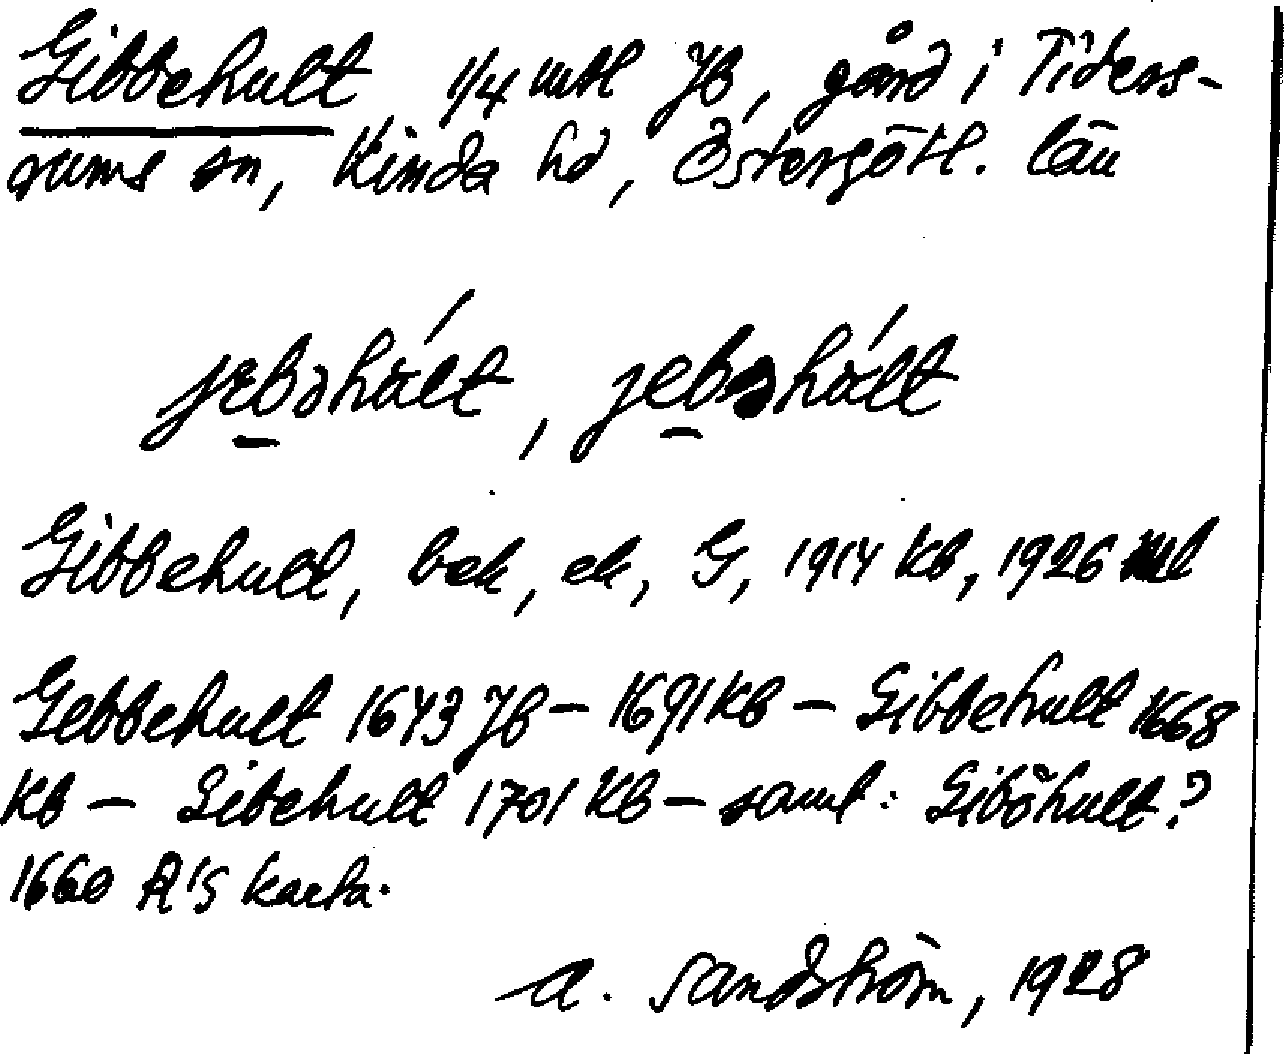 Gibbehult 1/4 mtl JB, gård i Tiders-
rums sn, Kinda hd, Östergötl. län
jebəhált, jebəhált
Gibbehult, bek, ek, G, 1914 KB, 1926 ml
Gebbehult 1643 JB – 1691 KB – Gibbehult 1668
KB – Gibehult 1701 KB – saml: Giböhult?
1660 R's karta.
A. Sandström, 1928